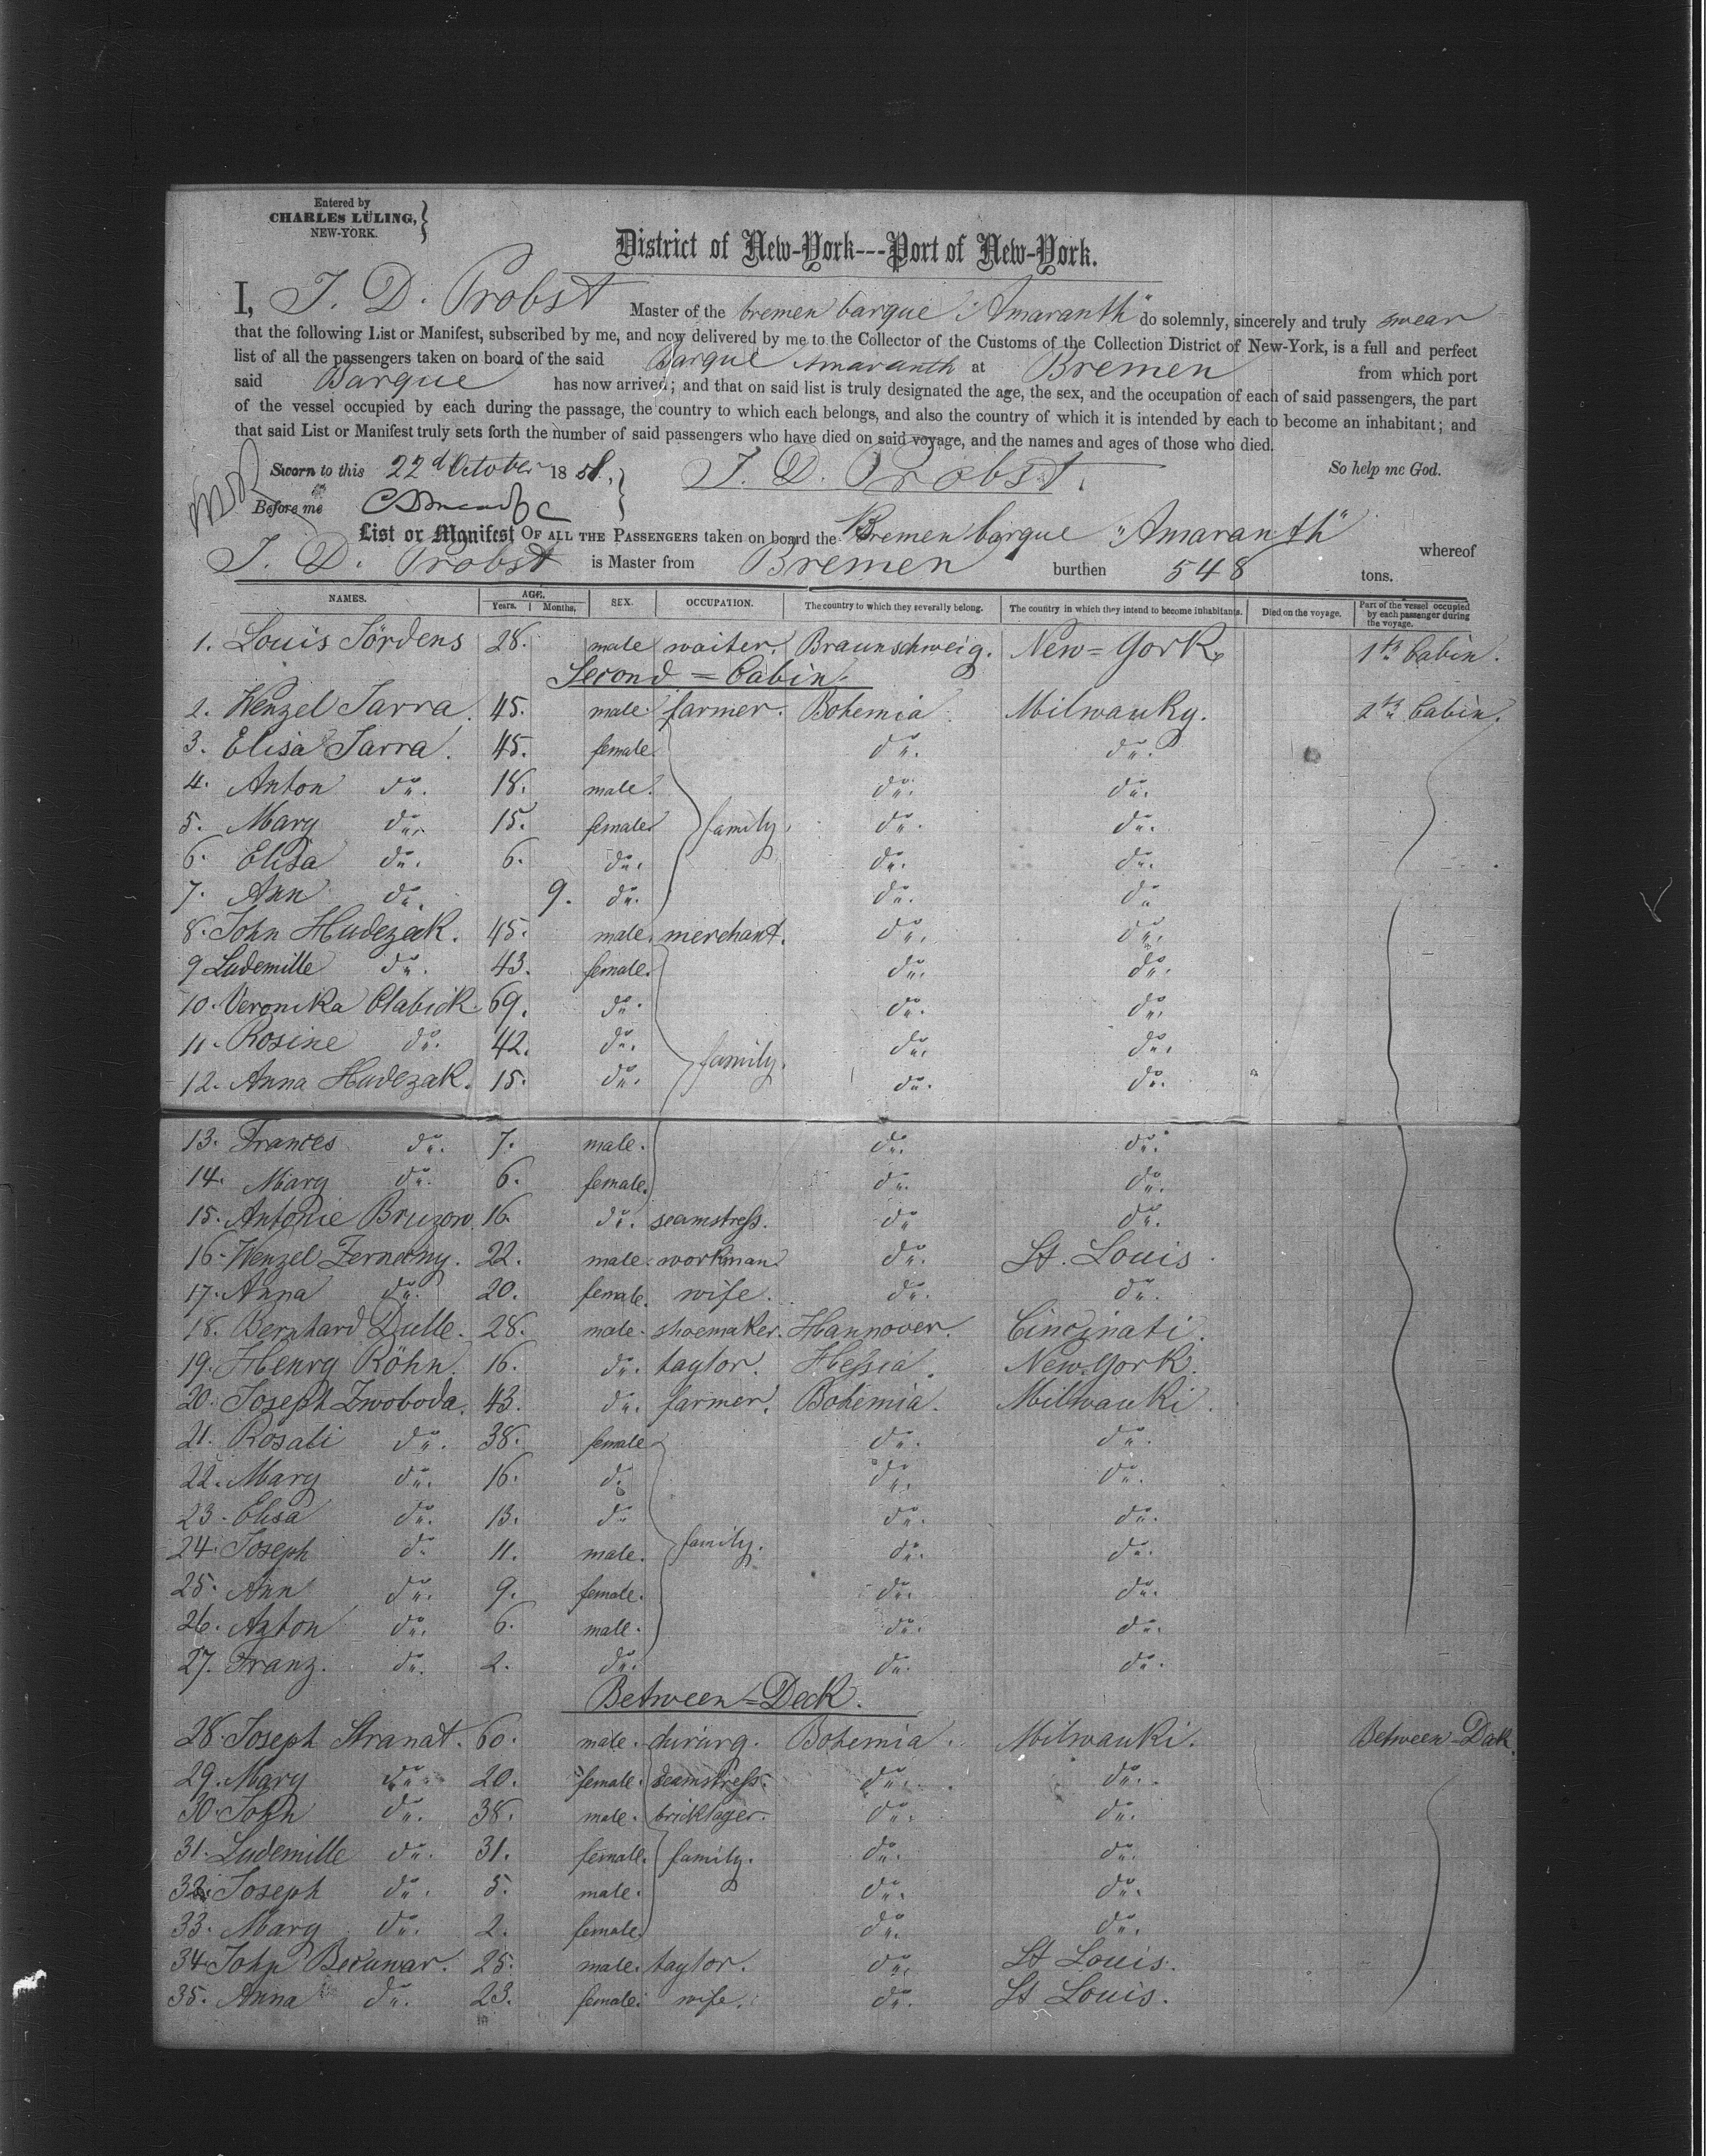 Entered by
CHARLES LÜLING,
NEW-YORK.
District of New-York---Port of New-York.
I, J. D. Probst Master of the bremen barque "Amaranth" do solemnly, sincerely and truly swear
that the following List or Manifest, subscribed by me, and now delivered by me to the Collector of the Customs of the Collection District of New-York, is a full and perfect
list of all the passengers taken on board of the said Barque Amaranth at Bremen from which port
said Barque has now arrived; and that on said list is truly designated the age, the sex, and the occupation of each of said passengers, the part
of the vessel occupied by each during the passage, the country to which each belongs, and also the country of which it is intended by each to become an inhabitant; and
that said List or Manifest truly sets forth the number of said passengers who have died on said voyage, and the names and ages of those who died.
Sworn to this 22d October 1858, J. D. Probst. So help me God.
Before me
List or Manifest OF ALL THE PASSENGERS taken on board the Bremen barque "Amaranth" whereof
J. D. Probst is Master from Bremen burthen 548 tons.
NAMES. AGE. Years. Months. SEX. OCCUPATION. The country to which they severally belong. The country in which they intend to become inhabitants. Died on the voyage. Part of the vessel occupied by each passenger during the voyage.
1. Louis Jördens 28. male waiter. Braunschweig. New=York. 1te Cabin.
Second = Cabin.
2. Wenzel Jarra. 45. male. farmer. Bohemia. Milwauky. 2te Cabin.
3. Elisa Jarra. 45. female. do. do.
4. Anton do. 18. male. do. do.
5. Mary do. 15. female family. do. do.
6. Elisa do. 6. do. do. do.
7. Ann do. 9. do. do. do
8. John Hudezak. 45. male. merchant. do. do.
9 Ludemille do. 43. female. do. do.
10. Veronika Clabick. 69. do. do. do.
11. Rosine do. 42. do. family. do. do.
12. Anna Hudezak. 15. do. do. do.
13. Frances do. 7. male. do. do.
14. Mary do. 6. female. do. do.
15. Antonie Bruzow. 16. do. seamstress. do do.
16. Wenzel Zernemy. 22. male. workman. do. St. Louis.
17. Anna do. 20. female. wife. do. do.
18. Bernhard Dulle. 28. male. shoemaker. Hannover. Cincinati.
19. Henry Röhn. 16. do. taylor. Hessia. New-York.
20. Joseph Zwoboda. 43. do. farmer. Bohemia. Milwauki.
21. Rosali do. 38. female do. do.
22. Mary do. 16. do do. do.
23. Elisa do. 13. do do. do.
24. Joseph do 11. male. family. do. do.
25. Ann do. 9. female. do. do.
26. Anton do. 6. male. do. do.
27. Franz. do. 2. do. do. do.
Between=Deck.
28. Joseph Stranat. 60. male. chirurg. Bohemia. Milwauki. Between-Dek.
29. Mary do. 20. female. seamstress. do. do.
30. John do. 38. male. bricklayer. do. do.
31. Ludemille do. 31. female. family. do. do.
32. Joseph do. 5. male. do. do.
33. Mary do. 2. female. do. do.
34. John Becunar. 25. male. taylor. do. St Louis.
35. Anna do. 23. female. wife. do. St Louis.